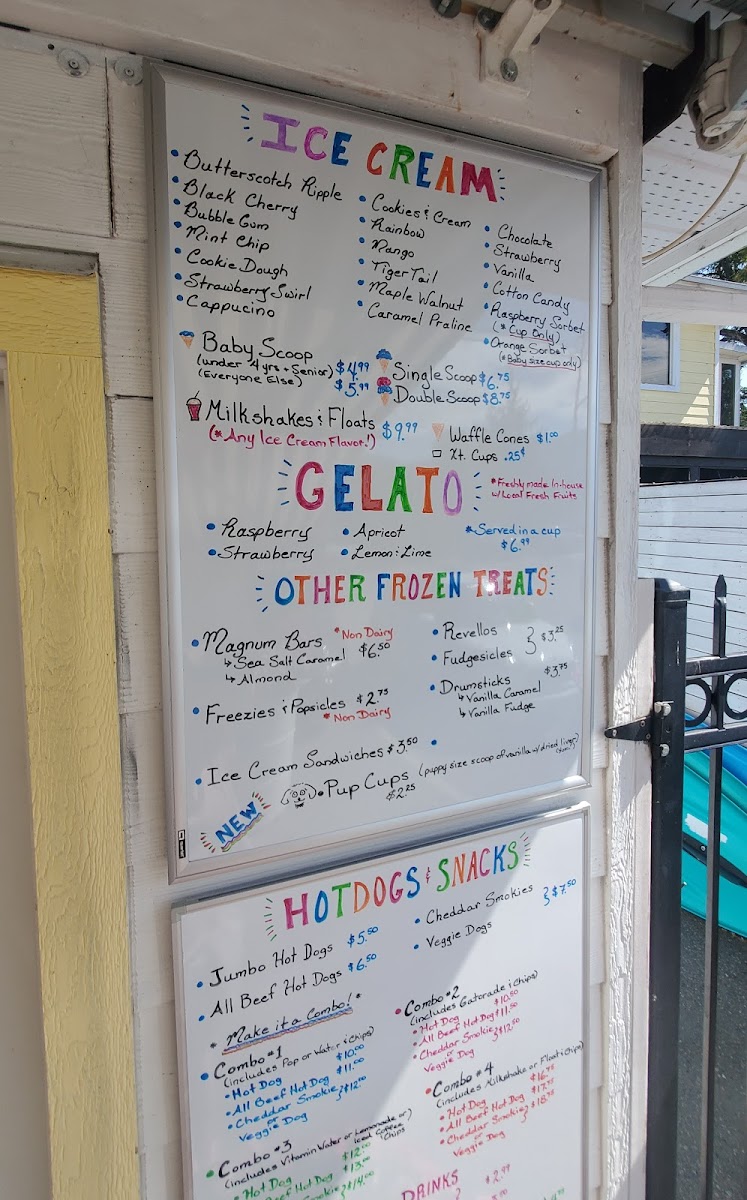 ICE CREAM
• Butterscotch Ripple
• Black Cherry
• Bubble Gum
• Mint Chip
• Cookie Dough
• Strawberry Swirl
• Cappucino
• Cookies & Cream
• Rainbow
• Mango
• Tiger Tail
• Maple Walnut
• Caramel Praline
• Chocolate
• Strawberry
• Vanilla
• Cotton Candy
• Raspberry Sorbet
(* Cup Only)
• Orange Sorbet
(* Baby size cup only)
Baby Scoop
(under 4 yrs + Senior) $4.99
(Everyone Else) $5.99
Single Scoop $6.75
Double Scoop $8.75
Milkshakes & Floats $9.99
(* Any Ice Cream Flavor!)
Waffle Cones $1.00
Xt. Cups .25¢
GELATO
*Freshly made In-house
w/ Local Fresh Fruits
• Raspberry
• Strawberry
• Apricot
• Lemon & Lime
*Served in a cup
$6.99
OTHER FROZEN TREATS
• Magnum Bars *Non Dairy
↳ Sea Salt Caramel $6.50
↳ Almond
• Freezies & Popsicles $2.75
* Non Dairy
• Revellos
• Fudgesicles } $3.25
• Drumsticks $3.75
↳ Vanilla Caramel
↳ Vanilla Fudge
• Ice Cream Sandwiches $3.50
NEW
• Pup Cups (puppy size scoop of vanilla w/ dried liver)
$2.25
HOTDOGS & SNACKS
• Jumbo Hot Dogs $5.50
• All Beef Hot Dogs $6.50
• Cheddar Smokies
• Veggie Dogs } $7.50
* Make it a Combo! *
• Combo #1
(includes Pop or Water & Chips)
• Hot Dog $10.00
• All Beef Hot Dog $11.00
• Cheddar Smokie } $12.00
or
Veggie Dog
• Combo #2
(includes Gatorade & Chips)
• Hot Dog $10.50
• All Beef Hot Dog $11.50
• Cheddar Smokie } $12.50
or
Veggie Dog
• Combo #3
(includes Vitamin Water or Lemonade or
Iced Coffee
& Chips
• Hot Dog $12.00
Beef Hot Dog $13.00
Smokie } $14.00
• Combo #4
(includes Milkshake or Float & Chips)
• Hot Dog
• All Beef Hot Dog
• Cheddar Smokie
or
Veggie Dog
DRINKS
$2.99